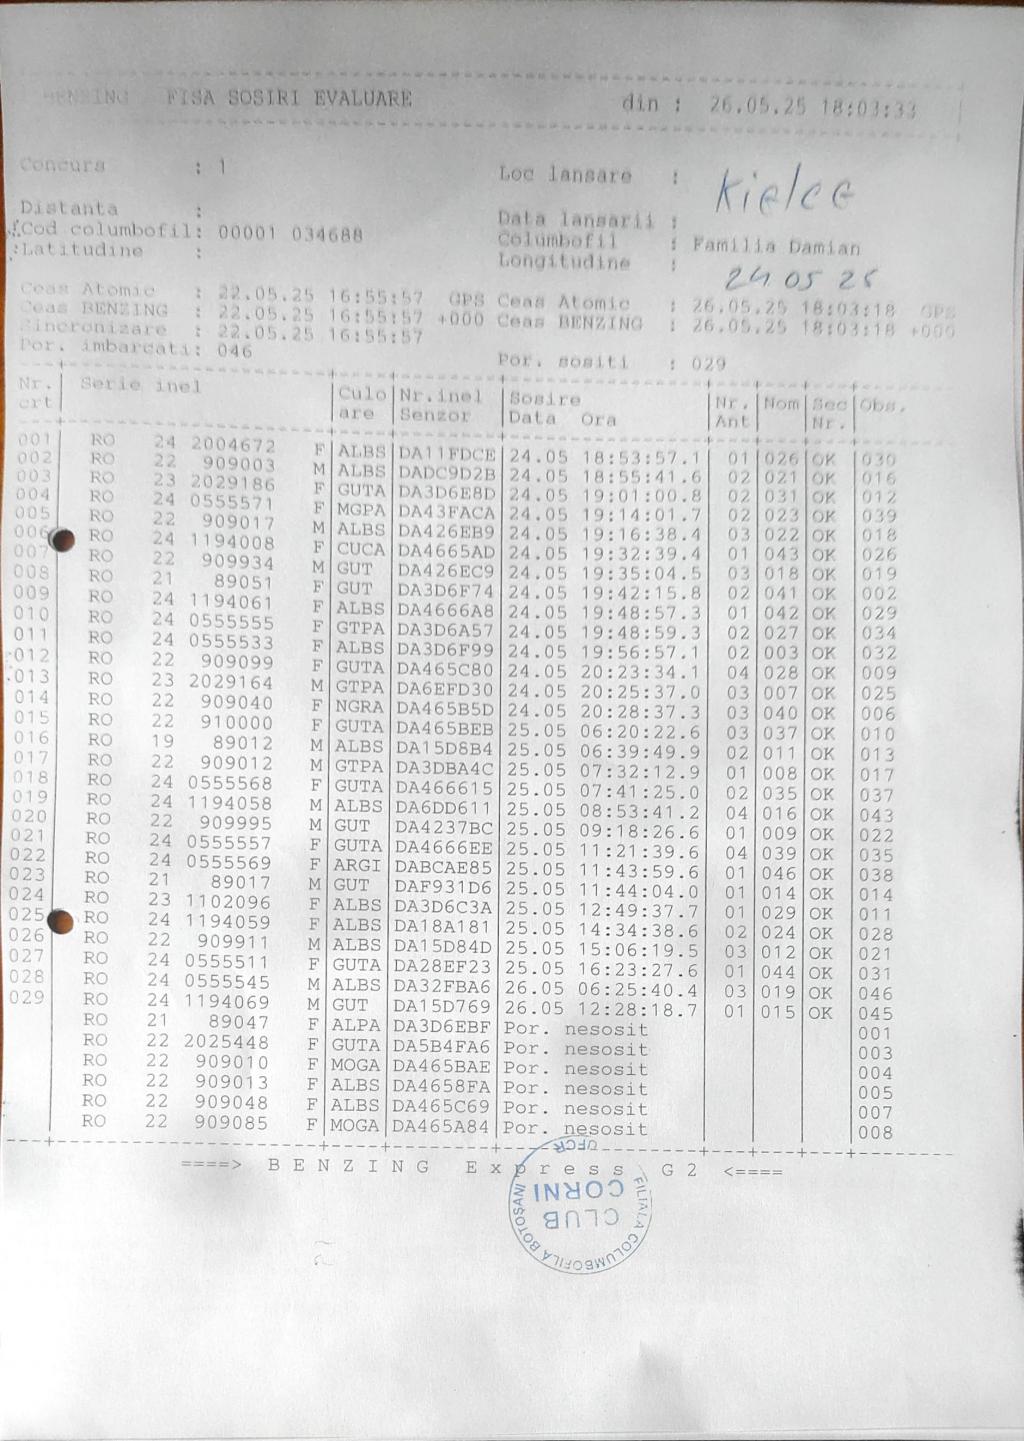 BENZING FISA SOSIRI EVALUARE din : 26.05.25 18:03:33
Concurs : 1 Loc lansare : Kielce
Distanta : Data lansarii :
Cod columbofil: 00001 034688 Columbofil : Familia Damian
Latitudine : Longitudine :
24 05 25
Ceas Atomic : 22.05.25 16:55:57 GPS Ceas Atomic : 26.05.25 18:03:18 GPS
Ceas BENZING : 22.05.25 16:55:57 +000 Ceas BENZING : 26.05.25 18:03:18 +000
Sincronizare : 22.05.25 16:55:57
Por. imbarcati: 046 Por. sositi : 029
Nr. Serie inel Culo Nr.inel Sosire Nr. Nom Sec Obs.
crt are Senzor Data Ora Ant Nr.
001 RO 24 2004672 F ALBS DA11FDCE 24.05 18:53:57.1 01 026 OK 030
002 RO 22 909003 M ALBS DADC9D2B 24.05 18:55:41.6 02 021 OK 016
003 RO 23 2029186 F GUTA DA3D6E8D 24.05 19:01:00.8 02 031 OK 012
004 RO 24 0555571 F MGPA DA43FACA 24.05 19:14:01.7 02 023 OK 039
005 RO 22 909017 M ALBS DA426EB9 24.05 19:16:38.4 03 022 OK 018
006 RO 24 1194008 F CUCA DA4665AD 24.05 19:32:39.4 01 043 OK 026
007 RO 22 909934 M GUT DA426EC9 24.05 19:35:04.5 03 018 OK 019
008 RO 21 89051 F GUT DA3D6F74 24.05 19:42:15.8 02 041 OK 002
009 RO 24 1194061 F ALBS DA4666A8 24.05 19:48:57.3 01 042 OK 029
010 RO 24 0555555 F GTPA DA3D6A57 24.05 19:48:59.3 02 027 OK 034
011 RO 24 0555533 F ALBS DA3D6F99 24.05 19:56:57.1 02 003 OK 032
012 RO 22 909099 F GUTA DA465C80 24.05 20:23:34.1 04 028 OK 009
013 RO 23 2029164 M GTPA DA6EFD30 24.05 20:25:37.0 03 007 OK 025
014 RO 22 909040 F NGRA DA465B5D 24.05 20:28:37.3 03 040 OK 006
015 RO 22 910000 F GUTA DA465BEB 25.05 06:20:22.6 03 037 OK 010
016 RO 19 89012 M ALBS DA15D8B4 25.05 06:39:49.9 02 011 OK 013
017 RO 22 909012 M GTPA DA3DBA4C 25.05 07:32:12.9 01 008 OK 017
018 RO 24 0555568 F GUTA DA466615 25.05 07:41:25.0 02 035 OK 037
019 RO 24 1194058 M ALBS DA6DD611 25.05 08:53:41.2 04 016 OK 043
020 RO 22 909995 M GUT DA4237BC 25.05 09:18:26.6 01 009 OK 022
021 RO 24 0555557 F GUTA DA4666EE 25.05 11:21:39.6 04 039 OK 035
022 RO 24 0555569 F ARGI DABCAE85 25.05 11:43:59.6 01 046 OK 038
023 RO 21 89017 M GUT DAF931D6 25.05 11:44:04.0 01 014 OK 014
024 RO 23 1102096 F ALBS DA3D6C3A 25.05 12:49:37.7 01 029 OK 011
025 RO 24 1194059 F ALBS DA18A181 25.05 14:34:38.6 02 024 OK 028
026 RO 22 909911 M ALBS DA15D84D 25.05 15:06:19.5 03 012 OK 021
027 RO 24 0555511 F GUTA DA28EF23 25.05 16:23:27.6 01 044 OK 031
028 RO 24 0555545 F ALBS DA32FBA6 26.05 06:25:40.4 03 019 OK 046
029 RO 24 1194069 M GUT DA15D769 26.05 12:28:18.7 01 015 OK 045
RO 21 89047 F ALPA DA3D6EBF Por. nesosit 001
RO 22 2025448 F GUTA DA5B4FA6 Por. nesosit 003
RO 22 909010 F MOGA DA465BAE Por. nesosit 004
RO 22 909013 F ALBS DA4658FA Por. nesosit 005
RO 22 909048 F ALBS DA465C69 Por. nesosit 007
RO 22 909085 F MOGA DA465A84 Por. nesosit 008
====> B E N Z I N G E x p r e s s G 2 <====
UFCR
FILIALA COLUMBOFILA BOTOȘANI
CLUB
CORNI